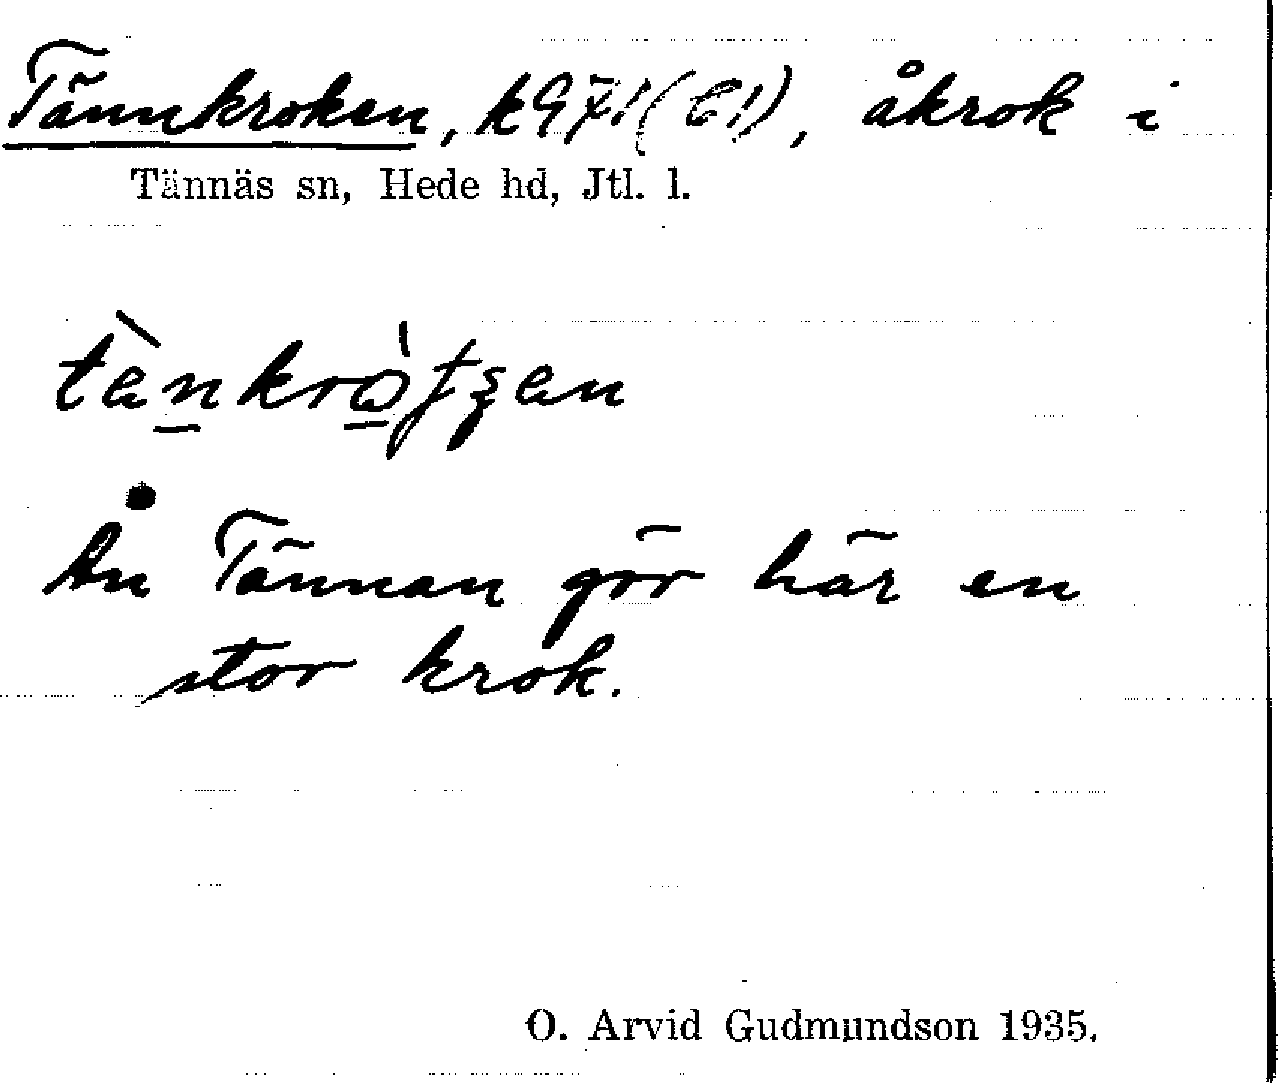 Tännkroken, k971(61), åkrok i
Tännäs sn, Hede hd, Jtl. l.
Ån Tännan gör här en
stor krok.
O. Arvid Gudmundson 1935.